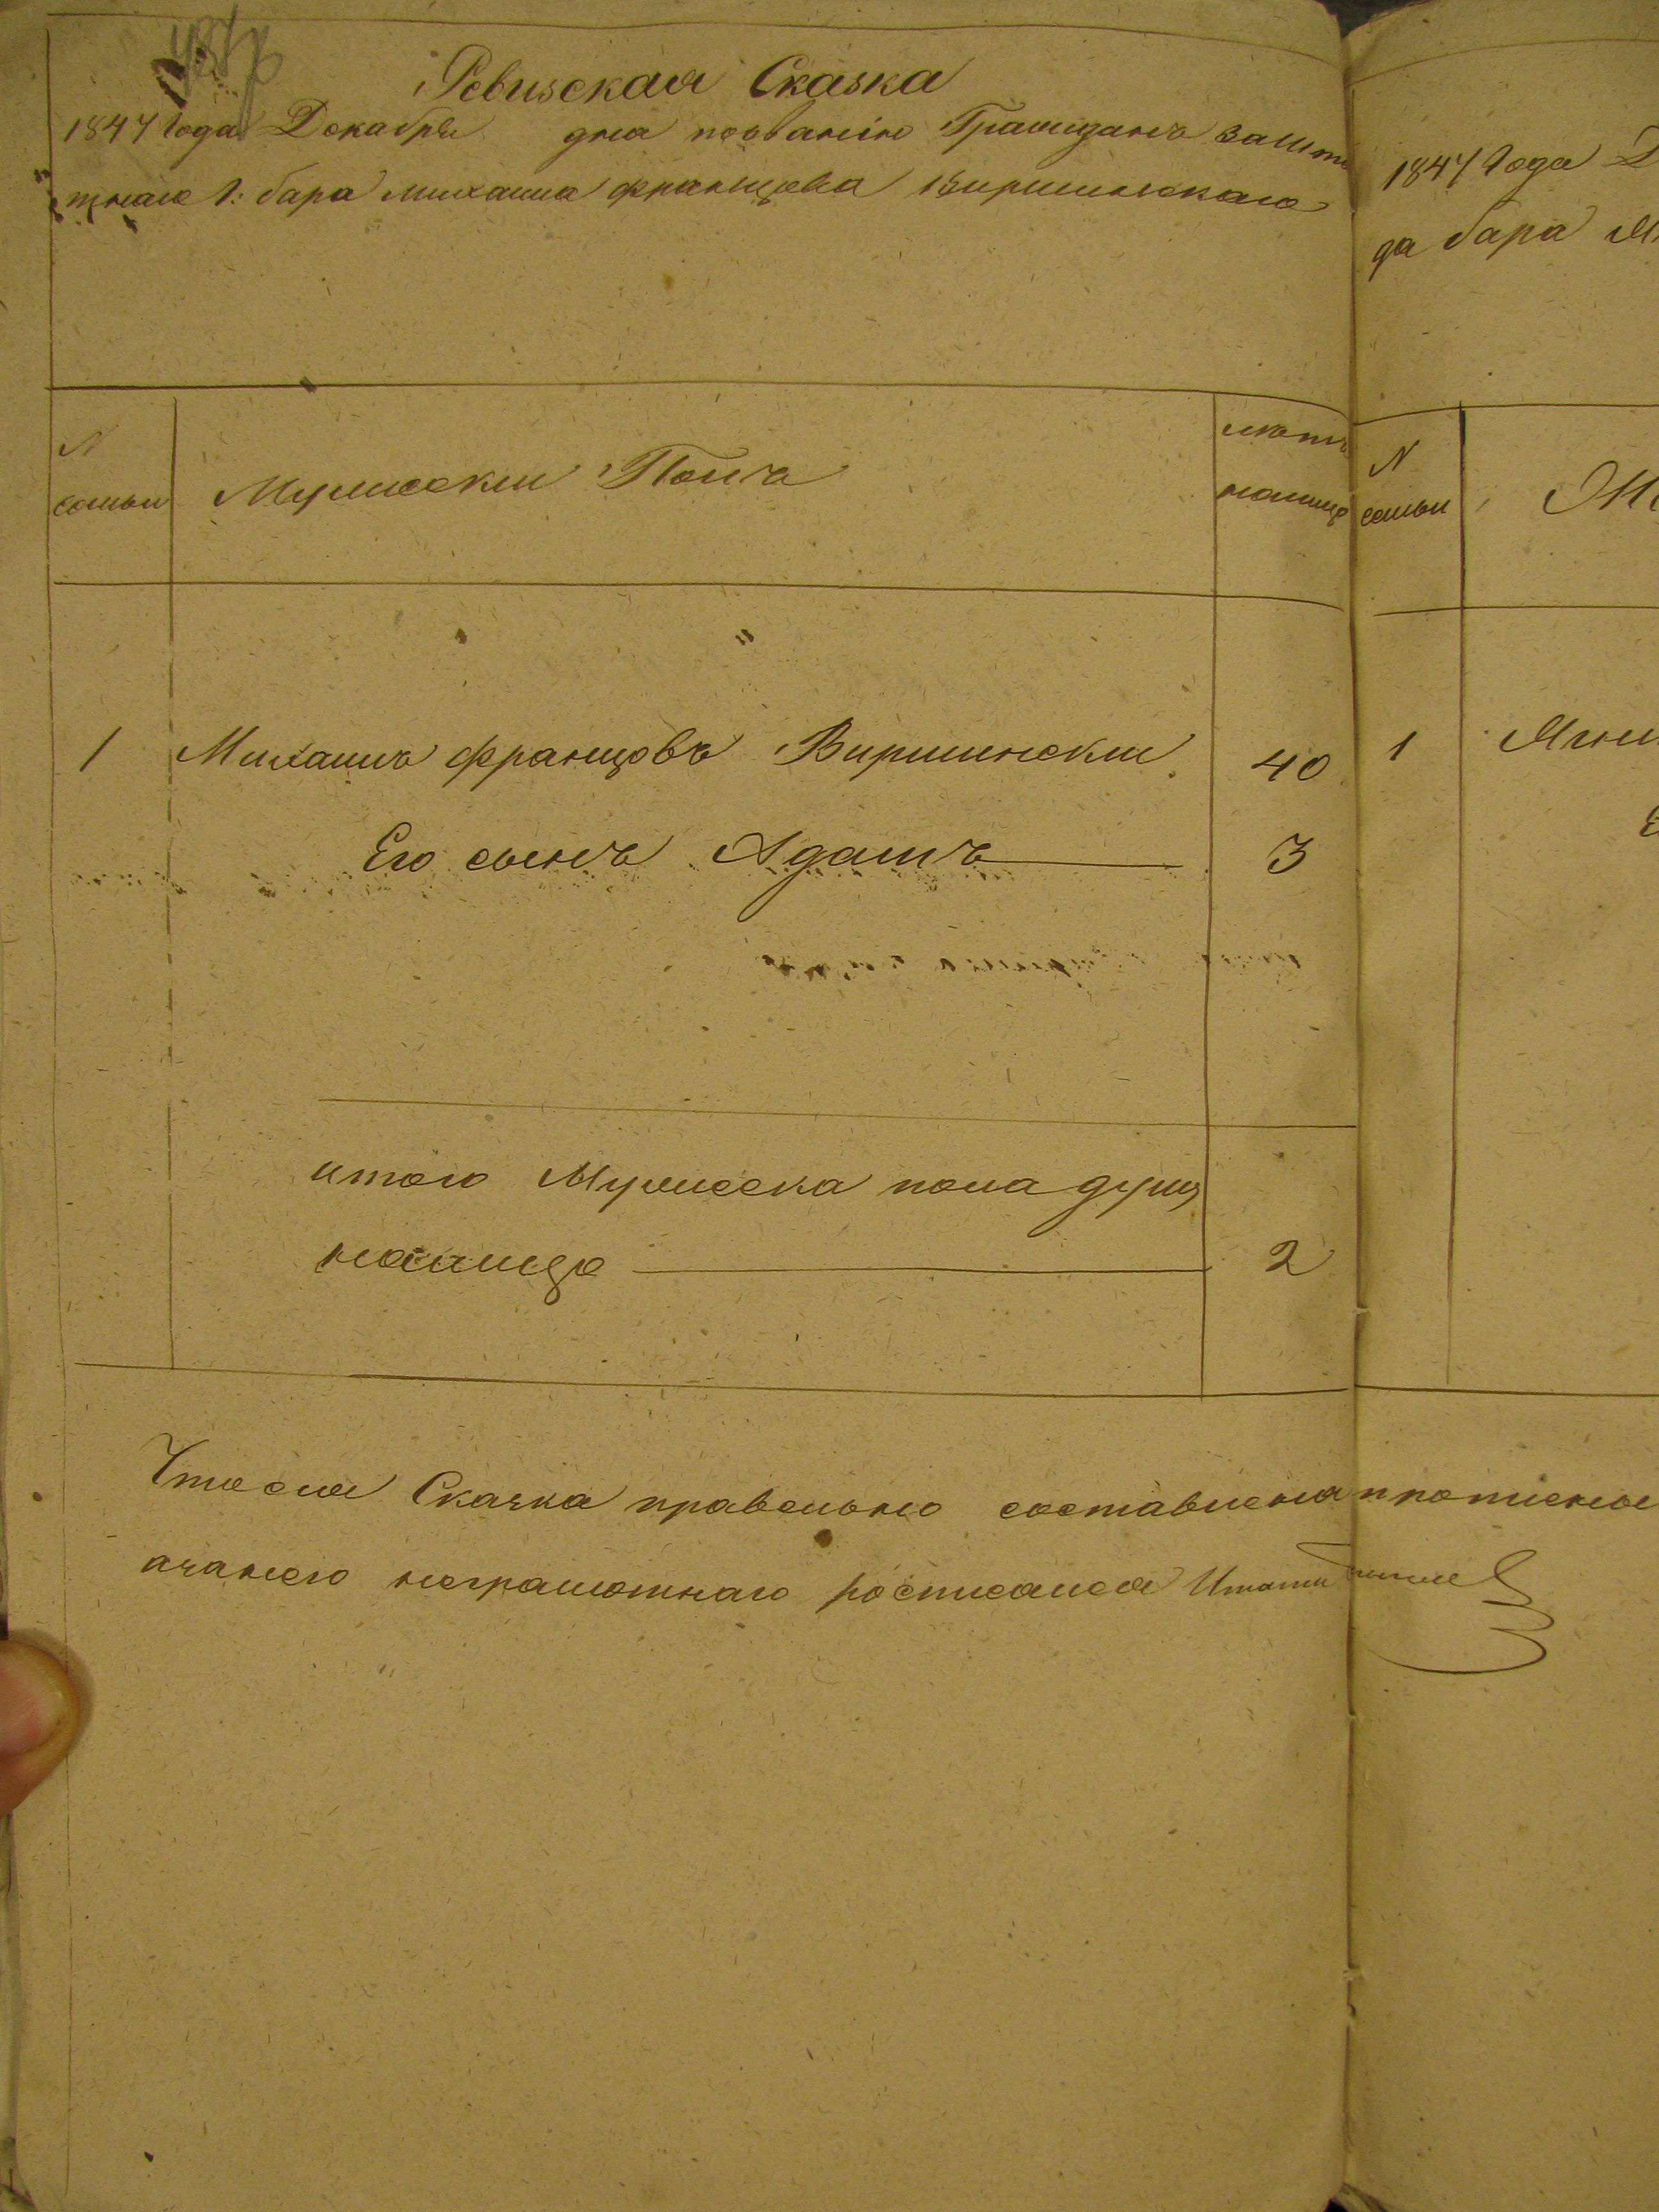 Ревизская Сказка
1847 Года Декабря дня позванію Гражданъ зашта
тнаго Г: бара михаила францова Виршинскаго
N
семьи
Мужески Полъ
лѣтъ
налицо
1 Михаилъ францовъ Виршински 40
Его сынъ Адамъ 3
итого Мужеска пола душъ
налицо 2
Что сия Сказка правельно составлена
ачанего неграмотнаго росписался
1847 Года Д
да бара
N
семьи
1